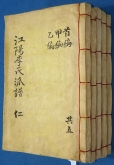 昔編
甲編
乙編
共五
江陽李氏派譜 仁